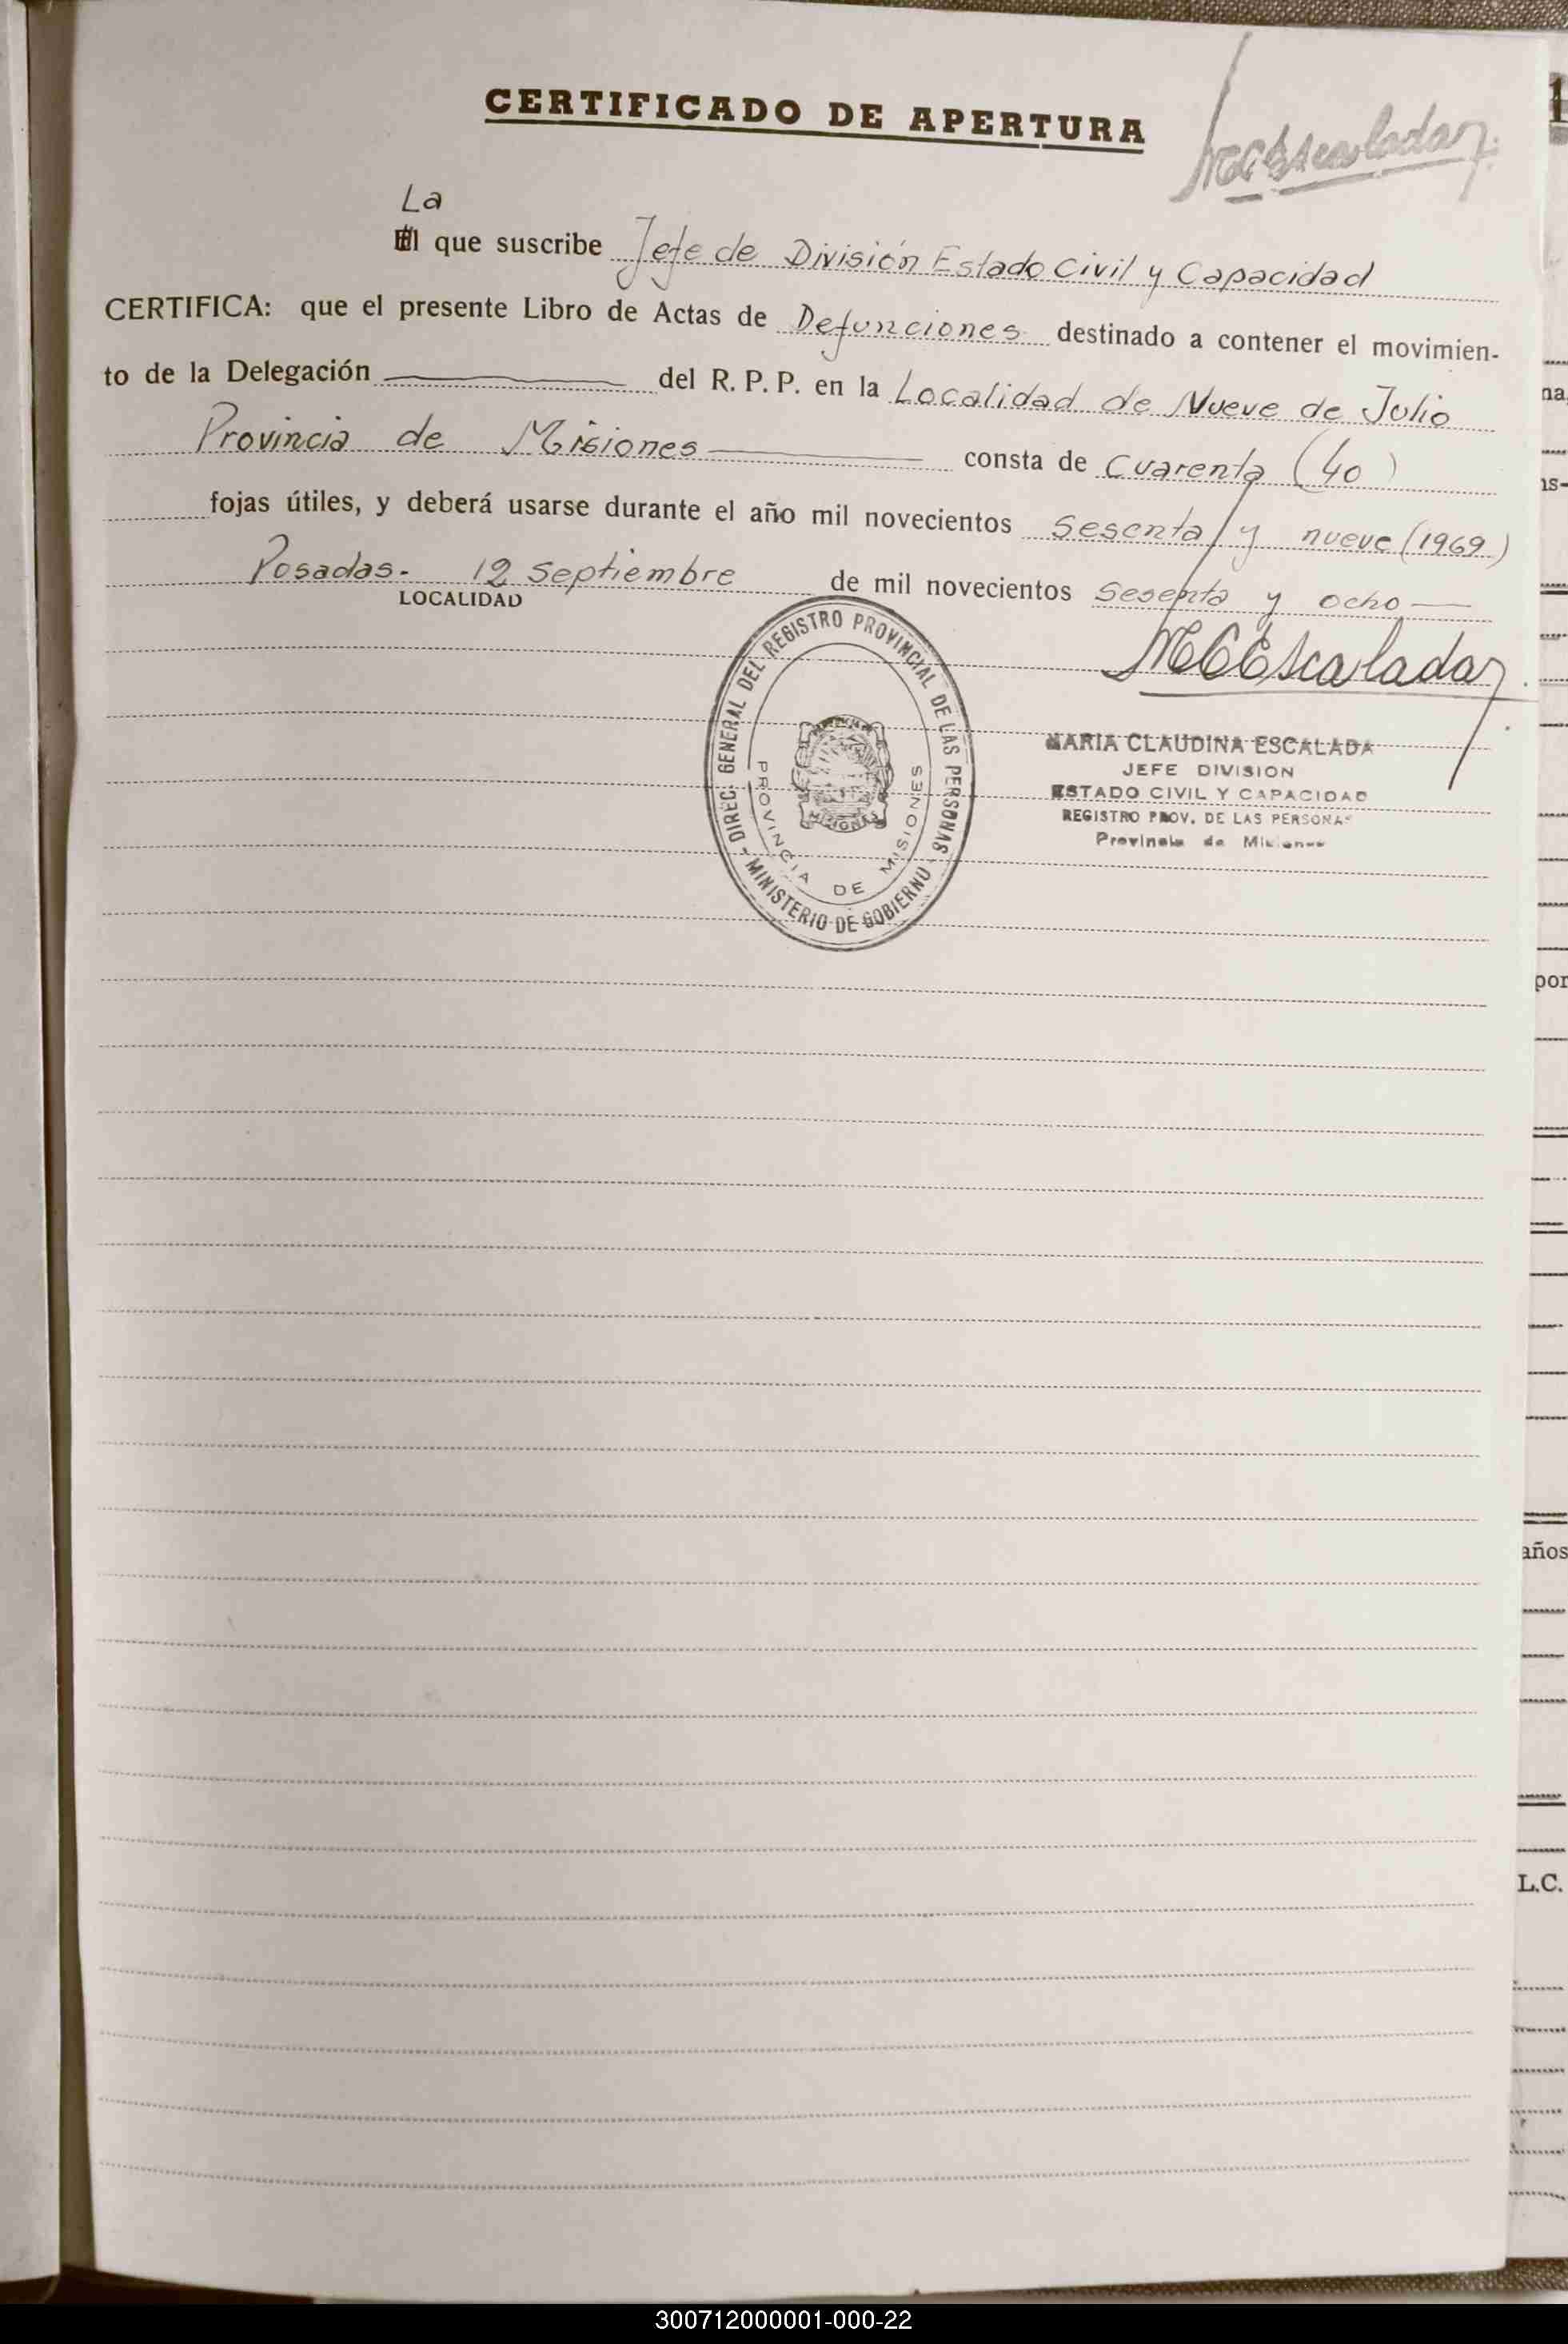 CERTIFICADO DE APERTURA
MCEscalada
La
El que suscribe Jefe de División Estado Civil y Capacidad
CERTIFICA: que el presente Libro de Actas de Defunciones destinado a contener el movimien-
to de la Delegación del R. P. P. en la Localidad de Nueve de Julio
Provincia de Misiones consta de Cuarenta (40)
fojas útiles, y deberá usarse durante el año mil novecientos Sesenta y nueve (1969)
Posadas.- 12 Septiembre de mil novecientos Sesenta y ocho
LOCALIDAD
MCEscalada
DIREC. GENERAL DEL REGISTRO PROVINCIAL DE LAS PERSONAS - MINISTERIO DE GOBIERNO -
PROVINCIA DE MISIONES
MISIONES
MARIA CLAUDINA ESCALADA
JEFE DIVISION
ESTADO CIVIL Y CAPACIDAD
REGISTRO PROV. DE LAS PERSONAS
Provincia de Misiones
1
na
ns-
por
años
L.C.
300712000001-000-22